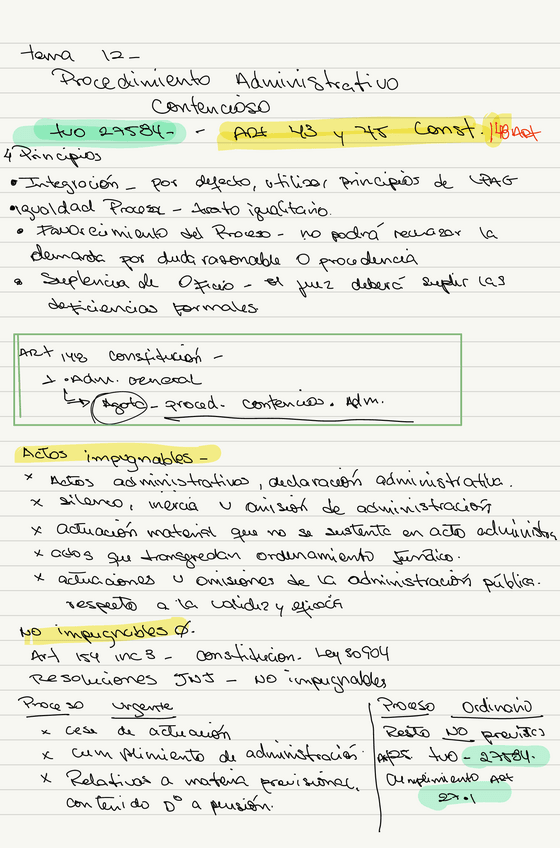 tema 12-
Procedimiento Administrativo
Contencioso
tuo 27584- - Art 43 y 45 Const. 148 Art
4 Principios
• Integración - por defecto, utilizar principios de LPAG
• igualdad Procesal - trato igualitario.
• Favorecimiento del Proceso - no podrá rechazar la
demanda por duda razonable O procedencia
• Suplencia de Oficio - el juez deberá suplir las
deficiencias formales
Art 148 constitución -
⊥ . Adm. General
↳ Agota - proced. contencios. Adm.
Actos impugnables -
x Actos administrativos, declaración administrativa.
x silencio, inercia u omisión de administración
x actuación material que no se sustenta en acto administra
x actos que transgredan ordenamiento Jurídico.
x actuaciones u omisiones de la administración pública.
respecto a la validez y eficacia
No impugnables Ø.
Art 154 inc 3 - constitucion. Ley 30904
Resoluciones JNJ - No impugnables
Proceso urgente
x cese de actuación
x cumplimiento de administración.
x Relativas a materia previsional,
contenido D° a pensión.
Proceso Ordinario
Resto NO previstos
Art 25 tuo - 27584.
Cumplimiento Art
27.1